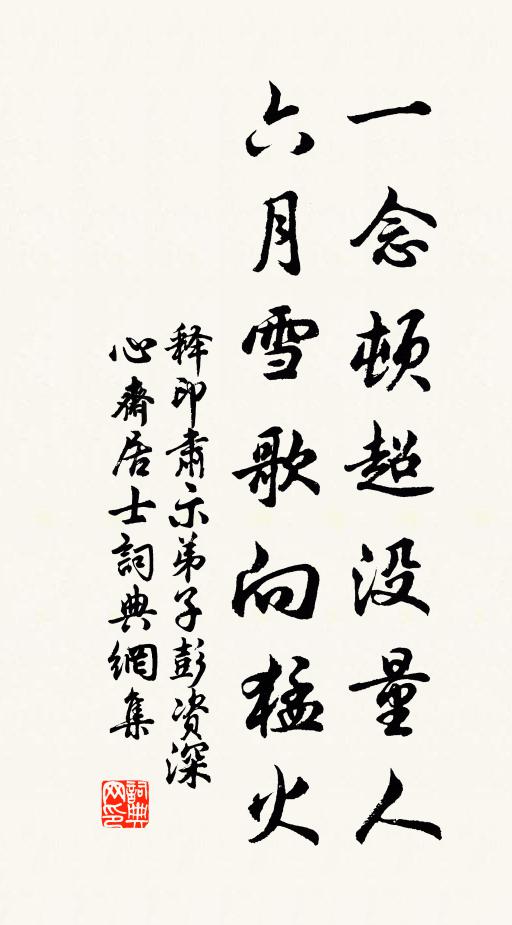 一念顿超没量人
六月雪歌向猛火
释印肃示弟子彭资深
心齋居士詞典網集
詞典网印